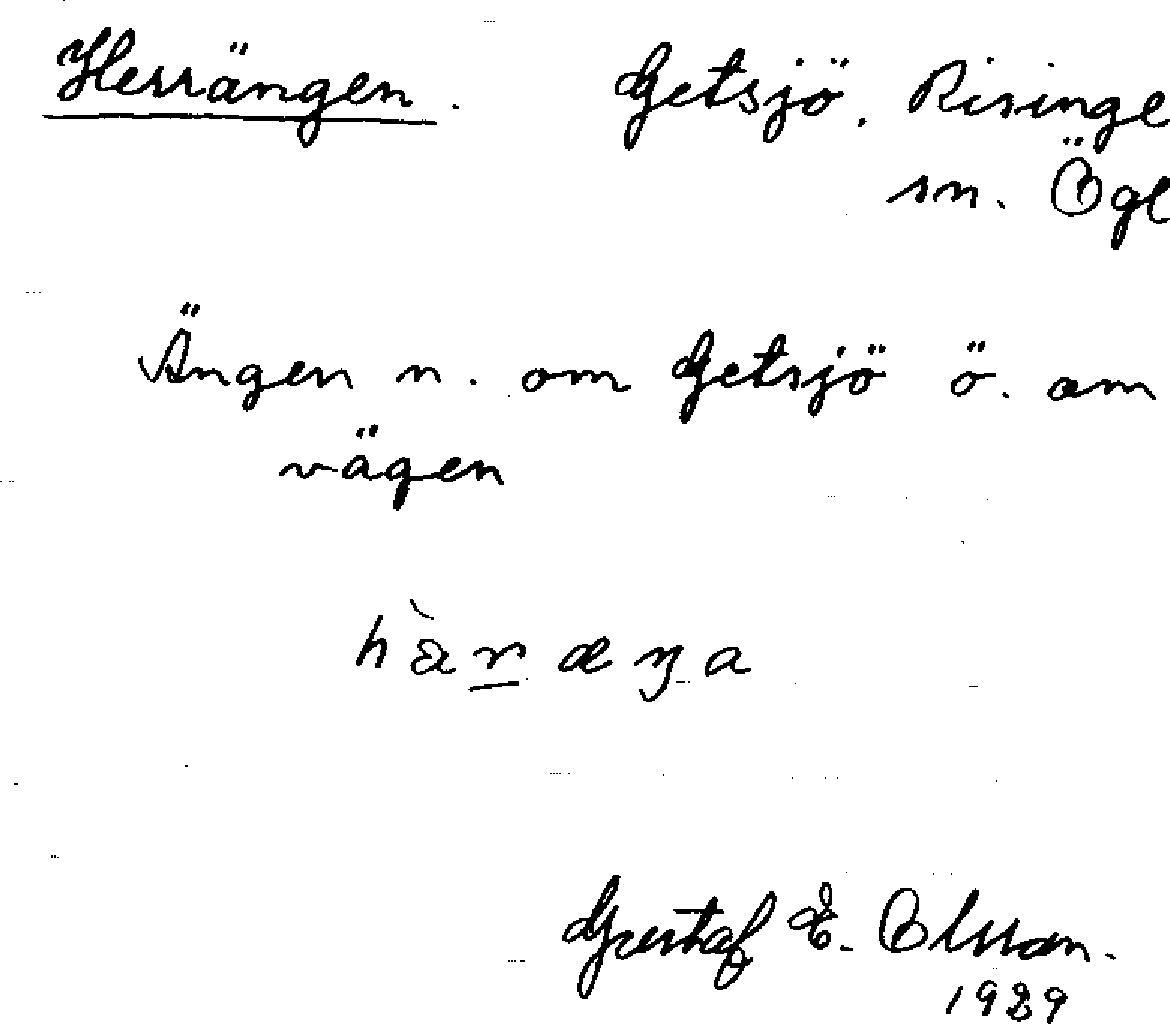 Herrängen. Getsjö. Risinge
sn. Ögl
Ängen n. om Getsjö ö. om
vägen
hàr æŋa
Gustaf E. Olsson.
1989